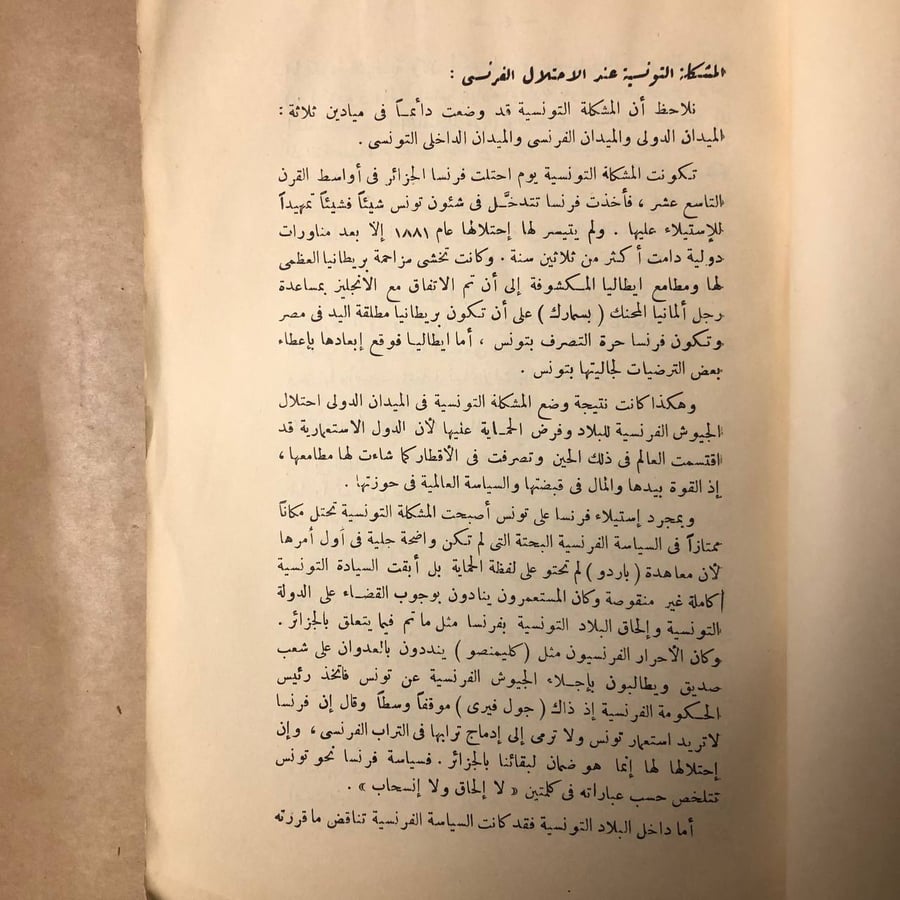 المشكلة التونسية عند الاحتلال الفرنسى :
نلاحظ أن المشكلة التونسية قد وضعت دائمـاً فى ميادين ثلاثة :
الميدان الدولى والميدان الفرنسى والميدان الداخلى التونسى .
تـكونت المشكلة التونسية يوم احتلت فرنسا الجزائر فى أواسط القرن
التاسع عشر ، فأخذت فرنسا تتدخَّـل فى شئون تونس شيئاً فشيئاً تمهيداً
للإستيلاء عليها . ولم يتيسر لها إحتلالها عام ١٨٨١ إلا بعد مناورات
دولية دامت أكثر من ثلاثين سنة . وكانت تخشى مزاحمة بريطانيا العظمى
لها ومطامع ايطاليا المـكشوفة إلى أن تم الاتفاق مع الانجليز بمساعدة
رجل ألمانيا المحنك ( بسمارك ) على أن تـكون بريطانيا مطلقة اليد فى مصر
وتـكون فرنسا حرة التصرف بتونس ، أما ايطاليـا فوقع إبعادها بإعطاء
بعض الترضيات لجاليتها بتونس .
وهكذا كانت نتيجة وضع المشكلة التونسية فى الميدان الدولى احتلال
الجيوش الفرنسية للبلاد وفرض الحمـاية عليها لأن الدول الاستعمارية قد
اقتسمت العالم فى ذلك الحين وتصرفت فى الأقطار كما شاءت لها مطامعها ،
إذ القوة بيدها والمال فى قبضتها والسياسة العالمية فى حوزتها .
وبمجرد إستيلاء فرنسا على تونس أصبحت المشكلة التونسية تحتل مكاناً
ممتازاً فى السياسة الفرنسية البحتة التى لم تـكن واضحة جلية فى أول أمرها
لأن معاهدة ( باردو ) لم تحتو على لفظة الحماية بل أبقت السيادة التونسية
كاملة غير منقوصة وكان المستعمرون ينادون بوجوب القضـاء على الدولة
التونسية وإلحاق البلاد التونسية بفرنسا مثل ما تم فيما يتعلق بالجزائر .
وكان الأحرار الفرنسيون مثل ( كليمنصو ) ينددون بالعدوان على شعب
صديق ويطالبون بإجـلاء الجيوش الفرنسية عن تونس فاتخذ رئيس
الحـكومة الفرنسية إذ ذاك ( جول فيرى ) موقفاً وسطاً وقال إن فرنسا
لا تريد استعمار تونس ولا ترمى إلى إدماج ترابها فى التراب الفرنسى ، وإن
إحتلالها لها إنما هو ضمان لبقائنا بالجزائر . فسياسة فرنسا نحو تونس
تتلخص حسب عباراته فى كلمتين « لا إلحاق ولا إنسحاب » .
أما داخل البلاد التونسية فقد كانت السياسة الفرنسية تناقض ما قررته